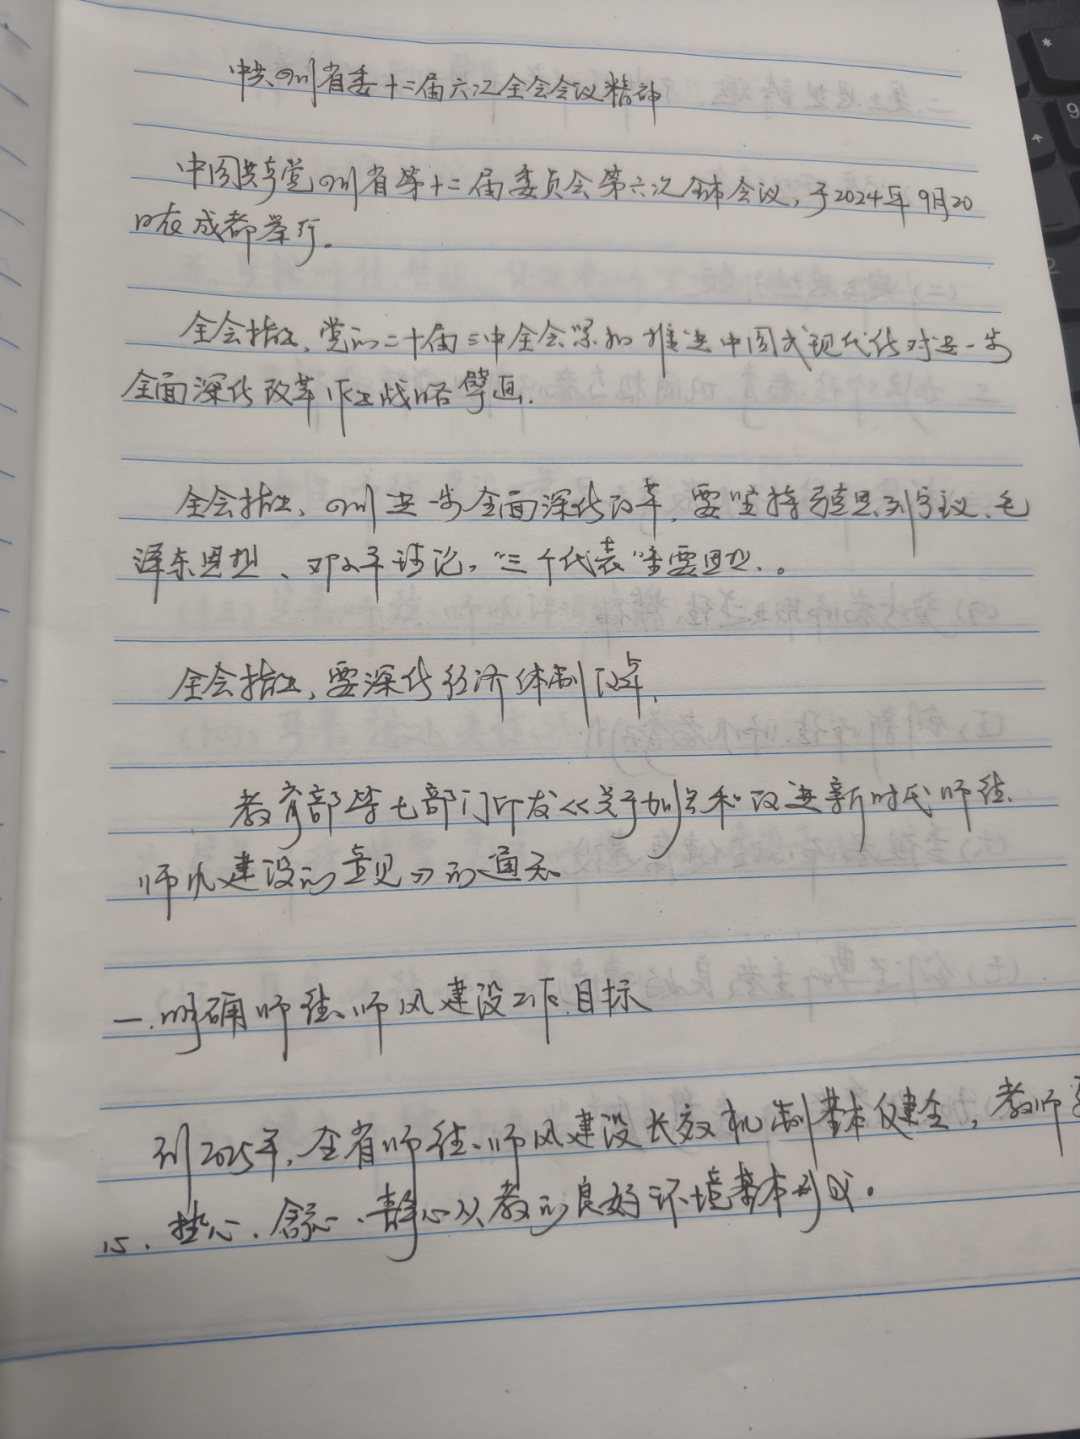 中共四川省委十二届六次全会会议精神
中国共产党四川省第十二届委员会第六次全体会议，于2024年9月20
日在成都举行。
全会指出，党的二十届三中全会紧扣推进中国式现代化对进一步
全面深化改革作出战略擘画.
全会指出，四川进一步全面深化改革，要坚持马克思列宁主义、毛
泽东思想、邓小平理论，"三个代表"重要思想.。
全会指出，要深化经济体制改革，
教育部等七部门印发《关于加强和改进新时代师德
师风建设的意见》的通知
一.明确师德、师风建设工作目标
到2025年，全省师德、师风建设长效机制基本健全，教师
心、热心、舒心、静心从教的良好环境基本形成。